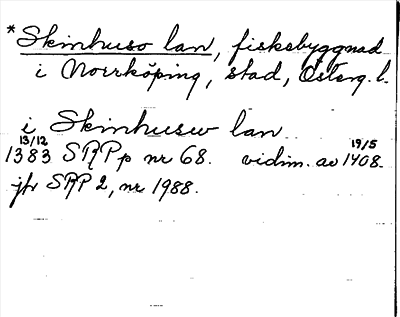 *Skinhuso lan, fiskebyggnad
i Norrköping, stad, Österg. l.
i Skinhusw lan
13/12 1383 SRPp nr 68. vidim. av 19/5 1408.
jfr SRP 2, nr 1988.